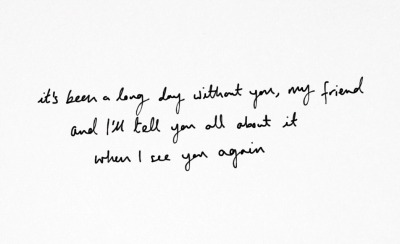 it's been a long day without you, my friend
and I'll tell you all about it
when I see you again